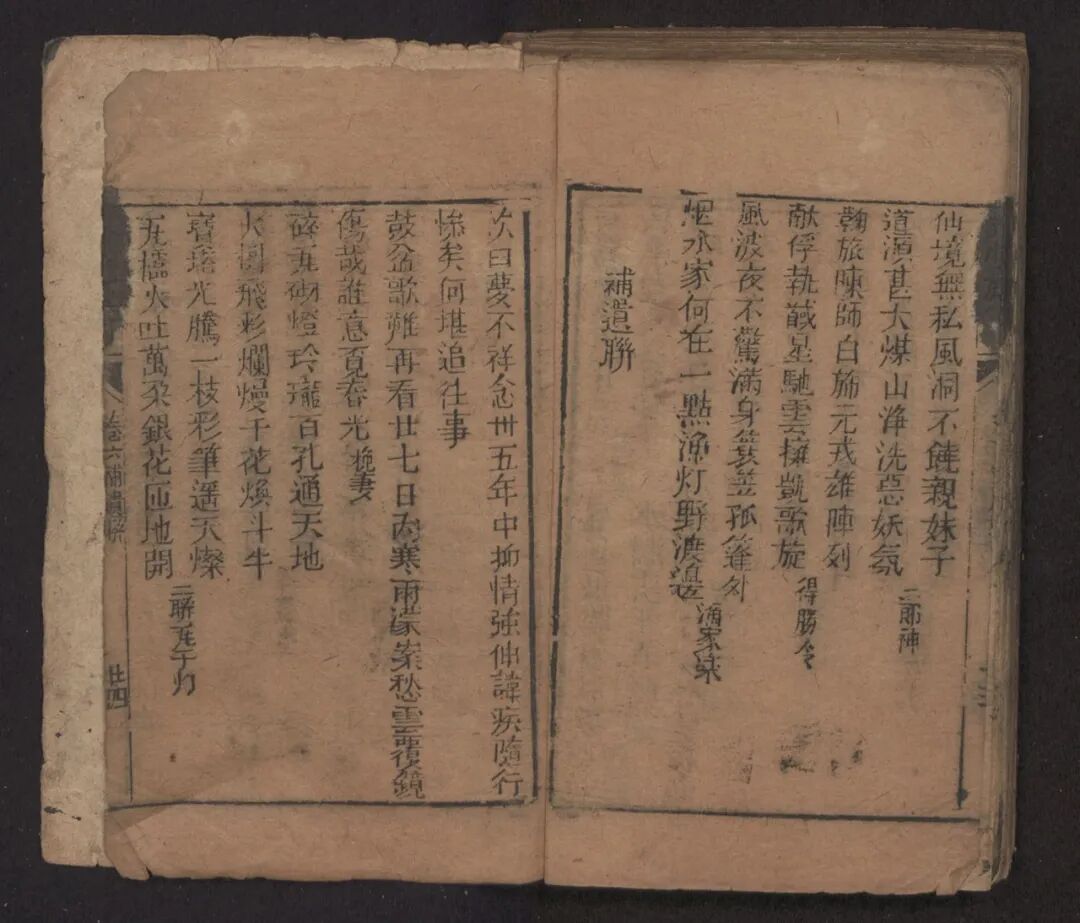 仙境無私風洞不饒親妹子
道源甚大煤山净洗惡妖氛
二郎神
鞠旅陳師白斾元戎雄陣列
献俘執馘星馳雲擁凱歌旋
得勝令
風波夜不驚滿身簑笠孤篷外
烟水家何在一點漁灯野渡邊
漁家樂
補遺聯
次日夢不祥念卅五年中抑情強伸諱疾隨行
惨矣何堪追往事
鼓盆歌難再看廿七日内寒雨濛案愁雲覆鏡
傷哉誰意覓春光
挽妻
碎瓦砌燈玲瓏百孔通天地
火圖飛彩爛熳千花煥斗牛
寶塔光騰一枝彩筆遥天燦
瓦橋火吐萬朶銀花匝地開
二聯瓦子灯
卷六補遺聯
廿四